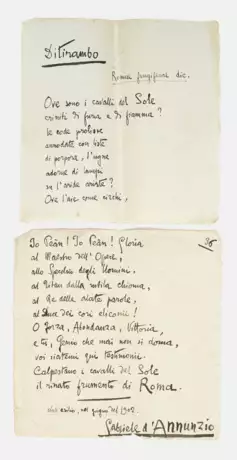 Ditirambo
Romae frugiferae dic.
Ove sono i cavalli del Sole
criniti di furia e di fiamma?
le code prolisse
annodate con liste
di porpora, l'ugne
adorne di lampi
su l'aride ariste?
Ove l'aie come circhi,
Io Peàn! Io Peàn! Gloria
36
al Maestro dell'Opere,
allo degli Uomini,
al Titan dalla chioma,
al Re delle alate parole,
al Duce dei cori eliconii!
O Forza, Abondanza, Vittoria,
e tu, Genio che mai non si doma,
voi siatemi qui testimonii.
Calpestano i cavalli del Sole
il rinato frumento di Roma.
nel giugno del 1902.
Gabriele d'Annunzio